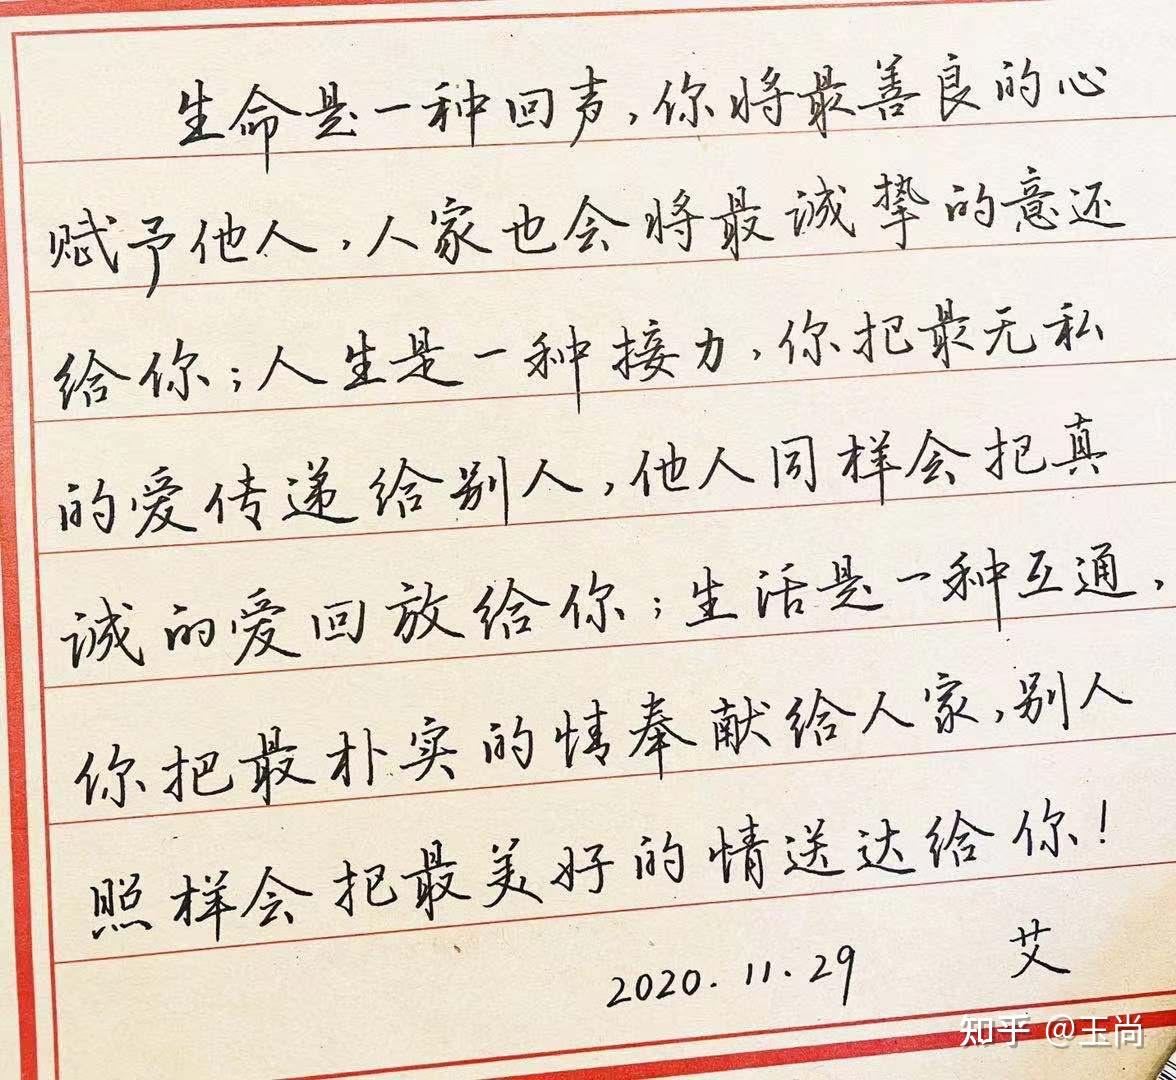 生命是一种回声,你将最善良的心
赋予他人,人家也会将最诚挚的意还
给你;人生是一种接力,你把最无私
的爱传递给别人,他人同样会把真
诚的爱回放给你;生活是一种互通,
你把最朴实的情奉献给人家,别人
照样会把最美好的情送达给你!
2020.11.29 艾
知乎 @玉尚